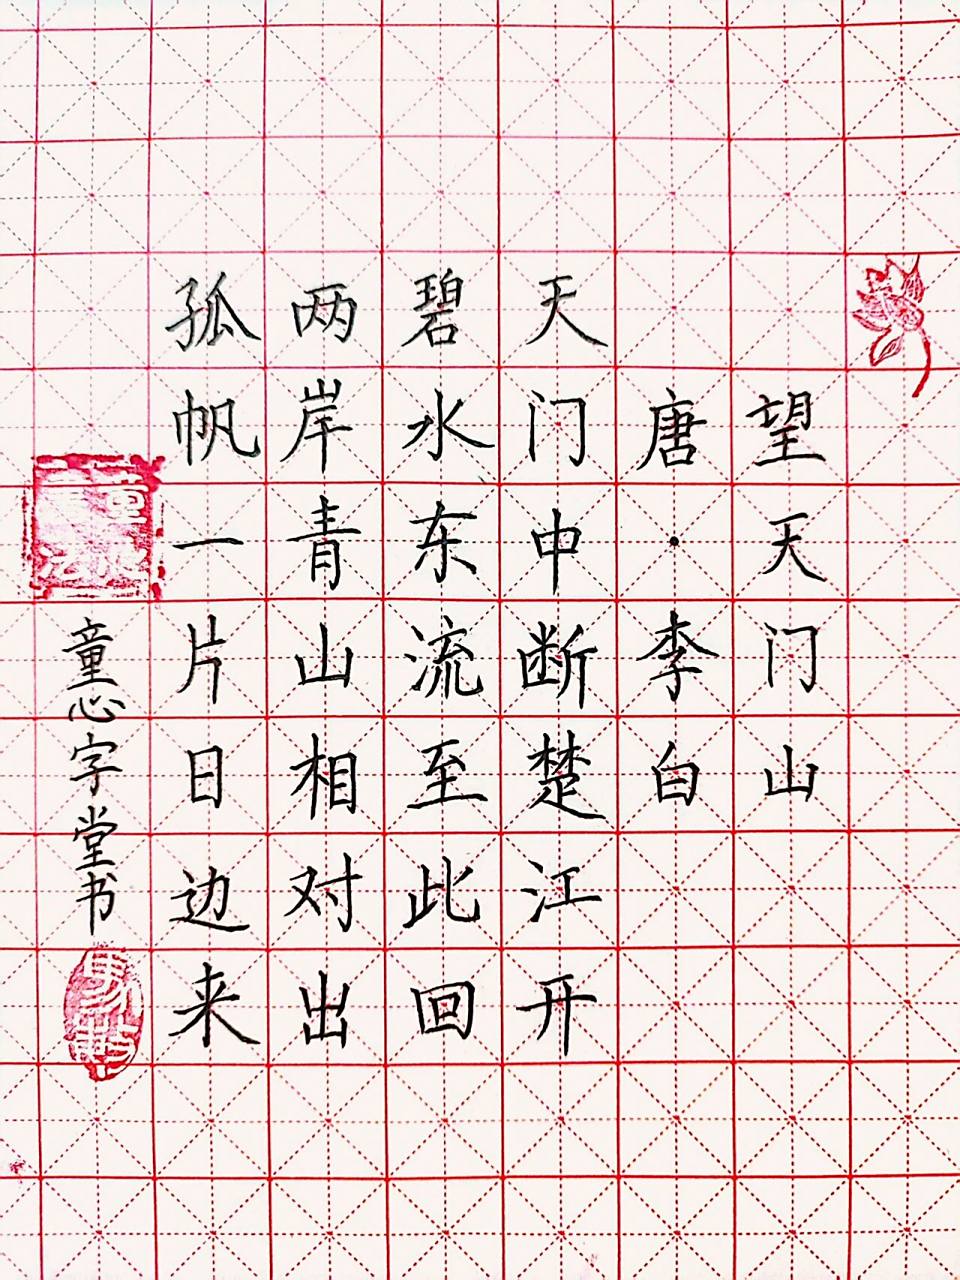 望天门山
唐·李白
天门中断楚江开
碧水东流至此回
两岸青山相对出
孤帆一片日边来
童心字堂书